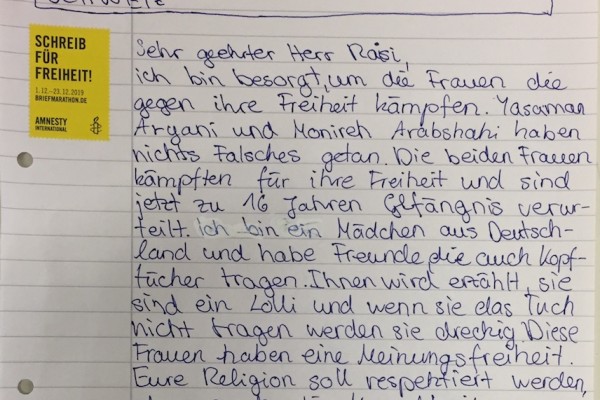 SCHREIB
FÜR
FREIHEIT!
1.12.–23.12.2019
BRIEFMARATHON.DE
AMNESTY
INTERNATIONAL
Sehr geehrter Herr Raisi,
ich bin besorgt, um die Frauen die
gegen ihre Freiheit kämpfen. Yasaman
Aryani und Monireh Arabshahi haben
nichts Falsches getan. Die beiden Frauen
kämpften für ihre Freiheit und sind
jetzt zu 16 Jahren Gefängnis verur-
teilt. Ich bin ein Mädchen aus Deutsch-
land und habe Freunde die auch Kopf-
tücher tragen. Ihnen wird erzählt, sie
sind ein Lolli und wenn sie das Tuch
nicht tragen werden sie dreckig. Diese
Frauen haben eine Meinungsfreiheit.
Eure Religion soll respektiert werden,